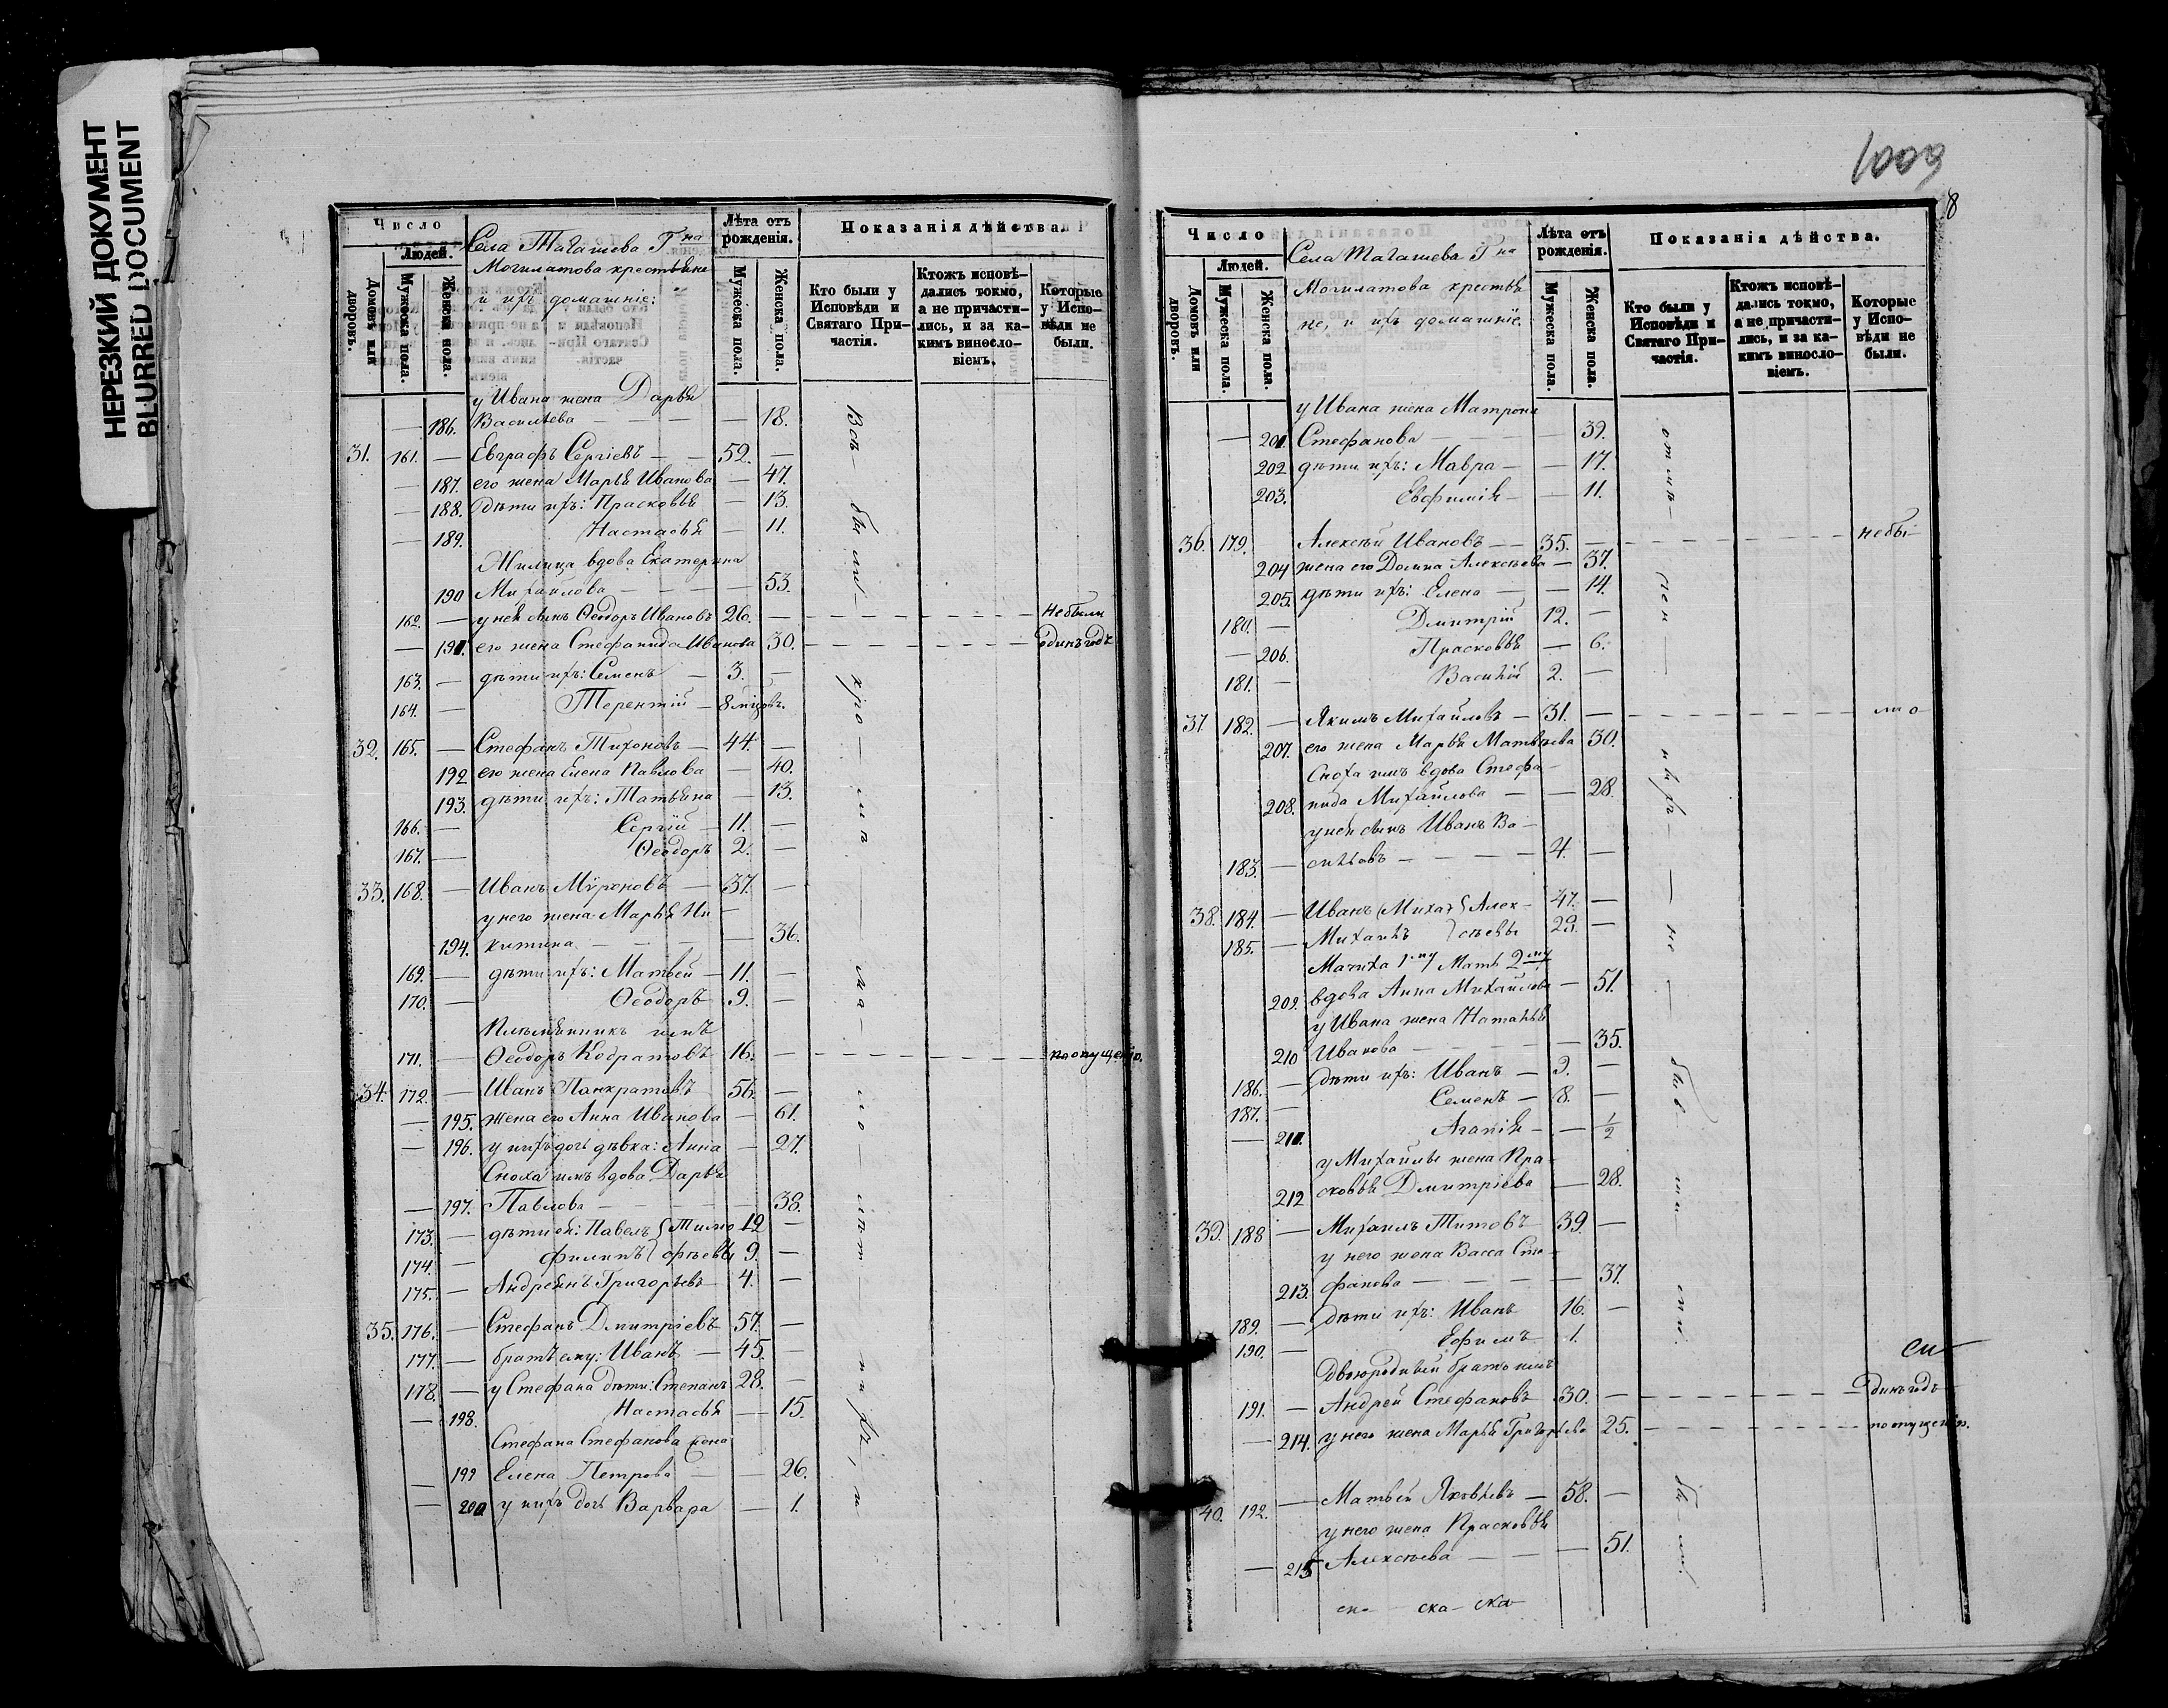 НЕРЕЗКИЙ ДОКУМЕНТ
BLURRED DOCUMENT
Число
Людей.
Домовъ или дворовъ.
Мужеска пола.
Женска пола.
Села Тагашева Гна
Могилатова крестьяне
и ихъ домашніе:
Лѣта отъ рожденія.
Мужеска пола.
Женска пола.
Показанія дѣйства.
Кто были у Исповѣди и Святаго Причастія.
Ктожъ исповѣдались токмо, а не причастились, и за какимъ винословіемъ.
Которые у Исповѣди не были.
у Ивана жена Дарья
186. Васильева — 18.
31. 161. — Евграфъ Сергіевъ — 52. —
187. его жена Марья Иванова — 47.
188. дѣти ихъ: Прасковья — 13.
189. Настасья — 11.
Жилица вдова Екатерина
190 Михайлова — 53.
162. — у ней сынъ Ѳеодоръ Ивановъ 26. — не были
191. его жена Стефанида Иванова 30. — одинъ годъ
163. — дѣти ихъ: Семенъ — 3. —
164. — Терентій — 8 мѣцовъ.
32. 165. — Стефанъ Тихоновъ — 44. —
192 его жена Елена Павлова — 40.
193. дѣти ихъ: Татьяна — 13.
166. — Сергій — 11. —
167. — Ѳеодоръ 2. —
33. 168. — Иванъ Мѵроновъ — 37. —
у него жена Марья Ни-
194. китина — 36.
169. — дѣти ихъ: Матвей — 11. —
170. — Ѳеодоръ 9. —
Племянникъ имъ
171. — Ѳеодоръ Кодратовъ 16. — по опущенію.
34. 172. — Иванъ Панкратовъ 56. —
195. жена его Анна Иванова — 61.
196. у нихъ дочь дѣвка: Анна — 27.
Сноха имъ вдова Дарья
197. Павлова — 38.
173. — дѣти ей: Павелъ } Тимо- 12 —
174. — Филипъ } фѣевы 9. —
175. — Андреянъ Григорьевъ — 4. —
35. 176. — Стефанъ Дмитріевъ 57. —
177. — братъ ему: Иванъ — 45. —
178. — у Стефана дѣти: Степанъ 28. —
198. Настасья — 15.
Стефана Стефанова жена
199 Елена Петрова — 26.
200 у нихъ дочь Варвара — 1.
8
Число
Людей.
Домовъ или дворовъ.
Мужеска пола.
Женска пола.
Села Тагашева Гна
Могилатова крестья
не, и ихъ домашніе.
Лѣта отъ рожденія.
Мужеска пола.
Женска пола.
Показанія дѣйства.
Кто были у Исповѣди и Святаго Причастія.
Ктожъ исповѣдались токмо, а не причастились, и за какимъ винословіемъ.
Которые у Исповѣди не были.
у Ивана жена Матрона
201. Стефанова — 39.
202 дѣти ихъ: Мавра — 17.
203. Евфимія — 11.
36. 179. Алексѣй Ивановъ — 35. — не бы-
204 жена его Домна Алексѣева — 37.
205. дѣти ихъ: Елена — 14.
180. — Дмитрій 12. —
206. Прасковья — 6.
181. — Василій 2. —
37 182. — Якимъ Михайловъ — 31. — ли о
207. его жена Марья Матвѣева 30.
Сноха имъ вдова Стефа-
208. нида Михайлова — 28.
у ней сынъ Иванъ Ва-
183. — сильевъ — 4. —
38. 184. — Иванъ } Алек- 47. —
185. — Михаилъ } сѣевы 23. —
Мачиха 1му Мать 2му
209. вдова Анна Михайлова — 51.
у Ивана жена Наталья
210 Иванова — 35.
186. — дѣти ихъ: Иванъ — 9. —
187. — Семенъ — 8. —
211. Агапія — 1/2
у Михайлы жена Пра-
212 сковья Дмитріева — 28.
39. 188 — Михаилъ Титовъ 39. —
у него жена Васса Сте-
213. фанова — 37.
189. — дѣти ихъ: Иванъ 16. —
190. — Ефимъ 1.
Двоюродный братъ имъ
191. — Андрей Стефановъ 30. — динъ годъ
214. у него жена Марья Григорьева 25. — по опущенію.
40. 192. — Матвей Яковлевъ — 58. —
у него жена Прасковья
215 Алексѣева — 51.